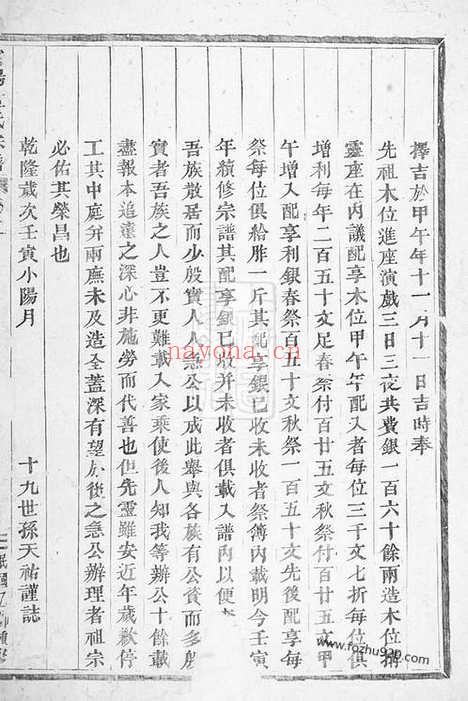 擇吉於甲午年十一月十一日吉時奉
先祖木位進座演戲三日三夜共費銀一百六十餘兩造木位捐
靈座在內議配享木位甲午年配入者每位三千文七折每位俱
增利每年二百五十文足春祭付百廿五文秋祭付百廿五文甲
午增入配享利銀春祭百五十文秋祭一百五十文先後配享每
祭每位俱給胙一斤其配享銀已收未收者祭簿內載明今壬寅
年續修宗譜其配享銀已收并未收者俱載入譜內以便
吾族散居而少殷實人人急公以成此舉與各族有公貲而多殷
實者吾族之人豈不更難載入家乘使後人知我等辦公十餘載
盡報本追遠之深心非施勞而代善也但先靈雖安近年歲歉停
工其中庭弁兩廡未及造全蓋深有望於後之急公辦理者祖宗
必佑其榮昌也
乾隆歲次壬寅小陽月
十九世孫天祐謹誌
nayona.cn
www.fozhu920.com